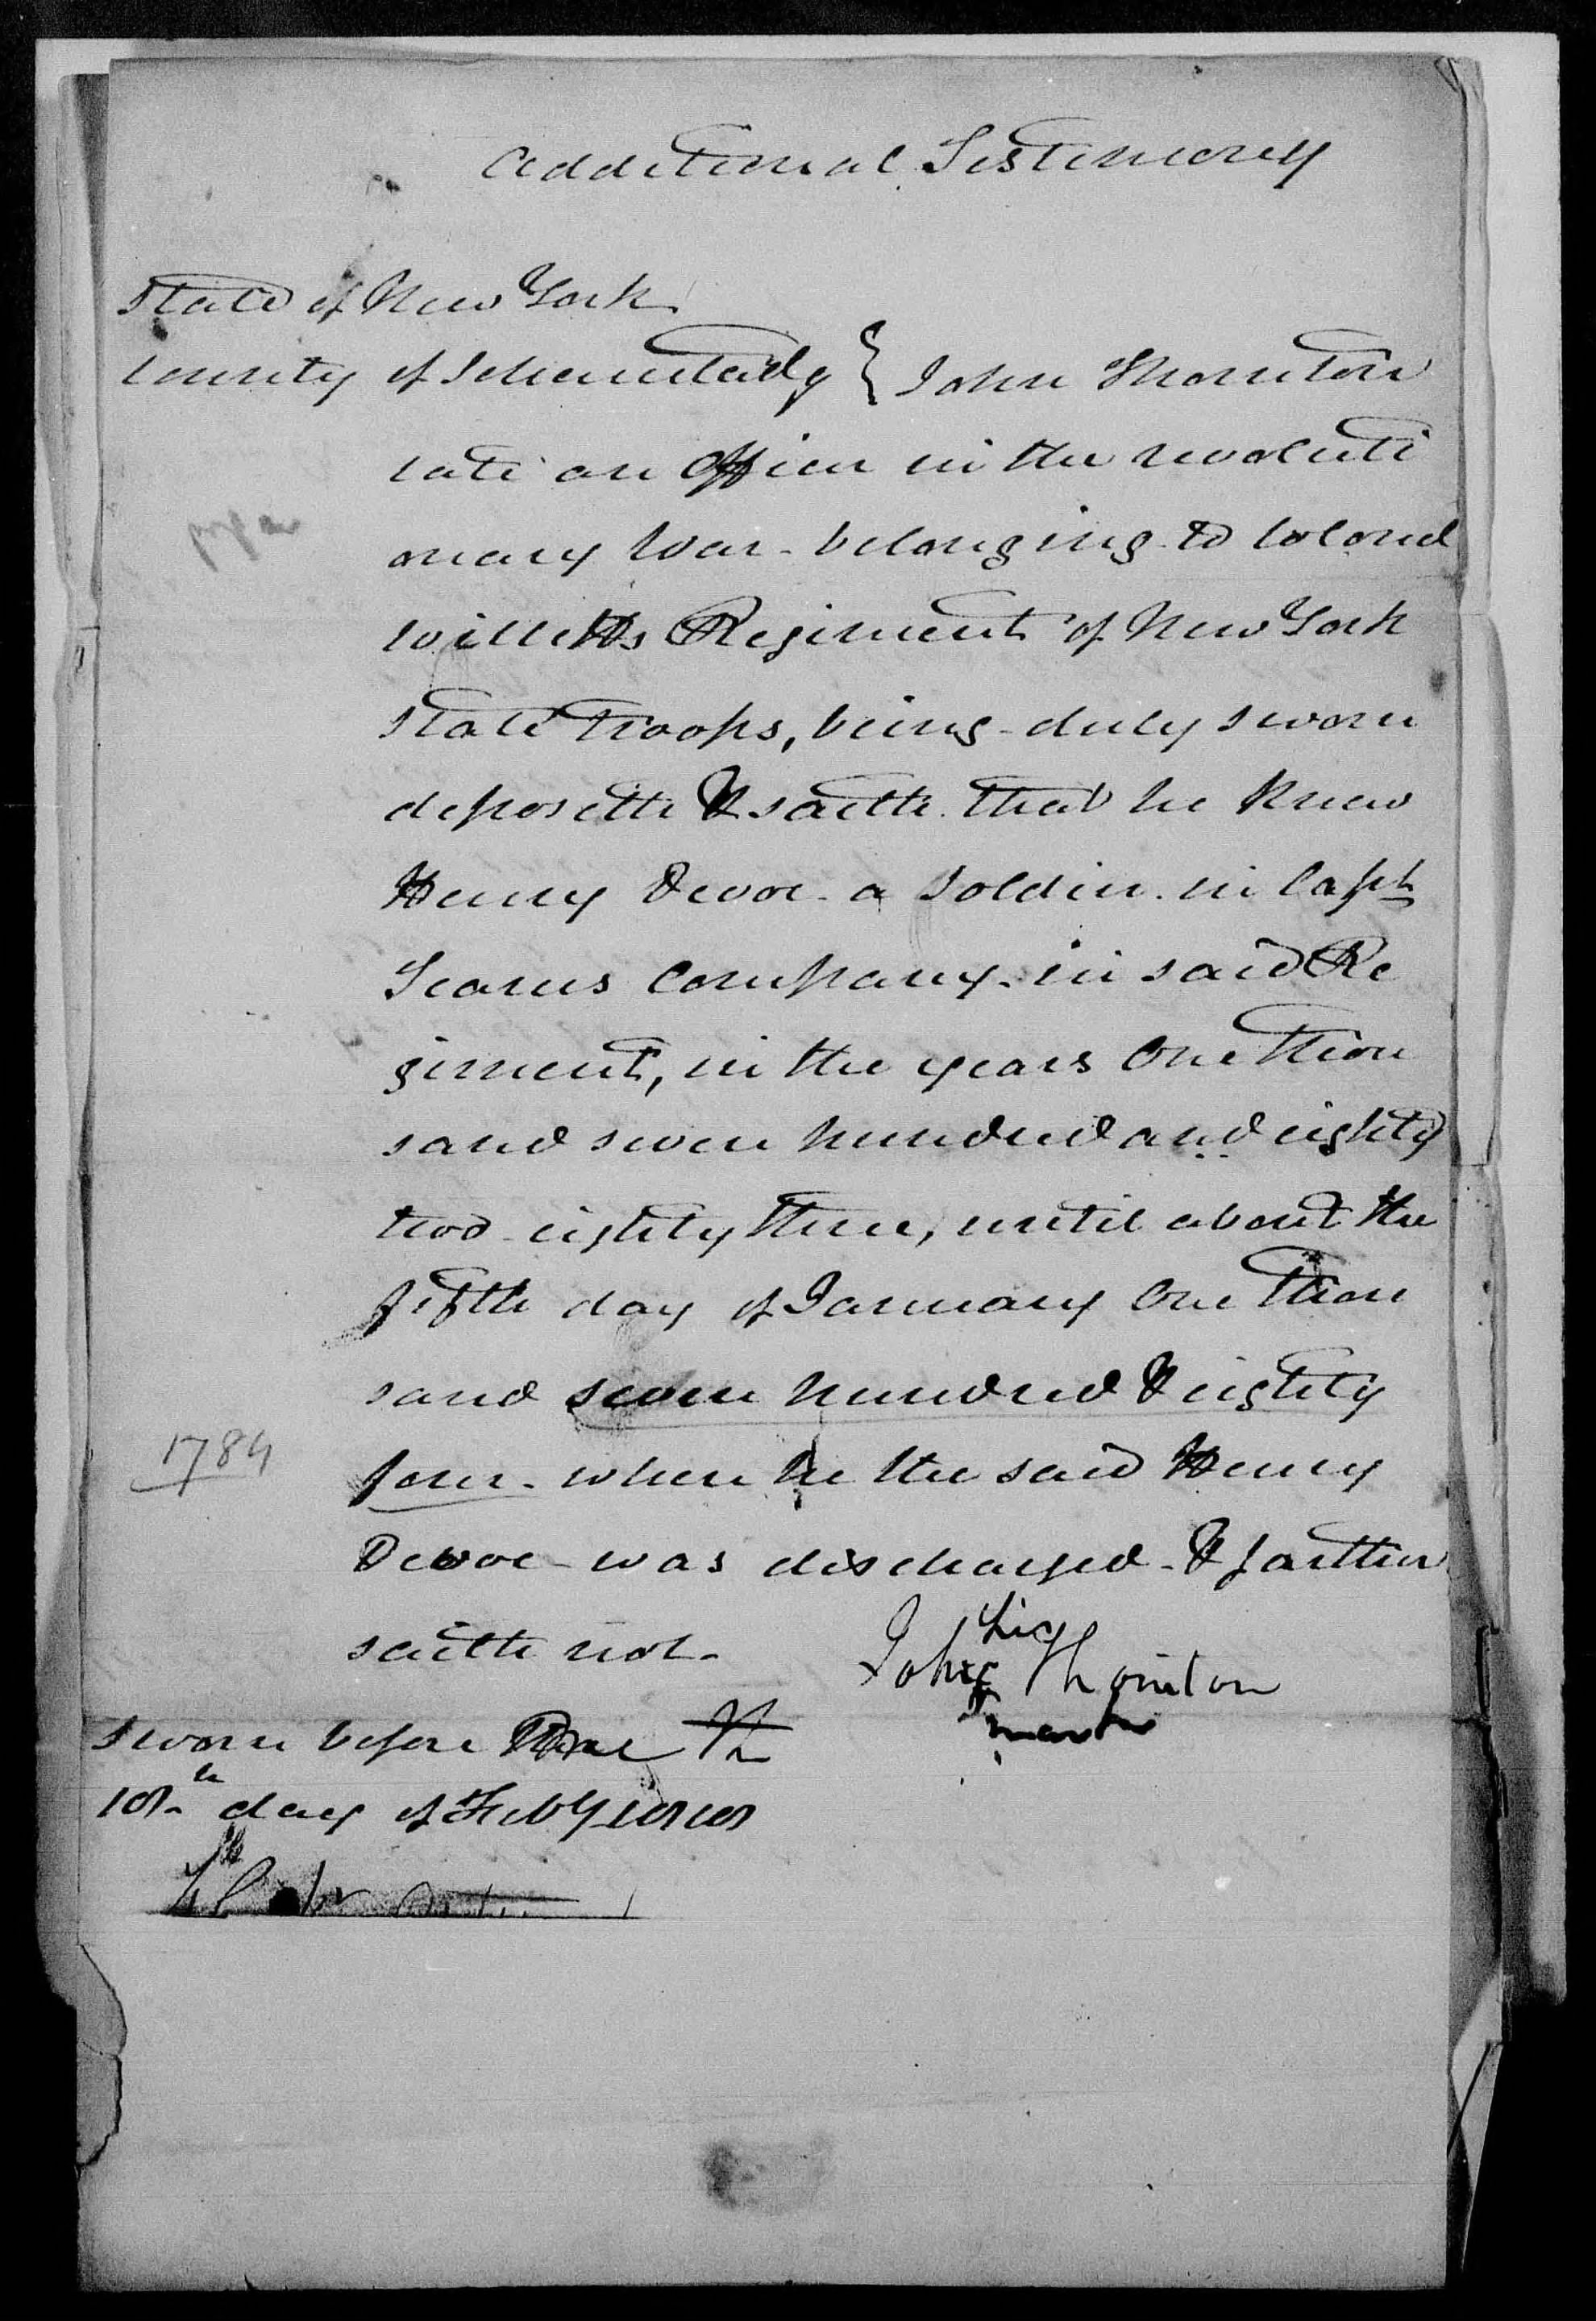 Additional Testimony
State of New York
County of Schenectady } John Thornton
late an Officer in the revoluti
onary War - belonging to Colonel
Willetts Regiment of New York
State Troops, being duly sworn
deposeth & saith that he knew
Henry Devoe - a Soldier in Capt
Tearns Company - in said Re
giment, in the years One thou
sand seven hundred and eighty
two - eighty three, until about the
fifth day of January One thou
sand seven hundred & eighty
1784
four - when he the said Henry
Devoe - was discharged - & farther
saith not -
his
John X Thornton
mark
Sworn before me
18th day of Feby 1818